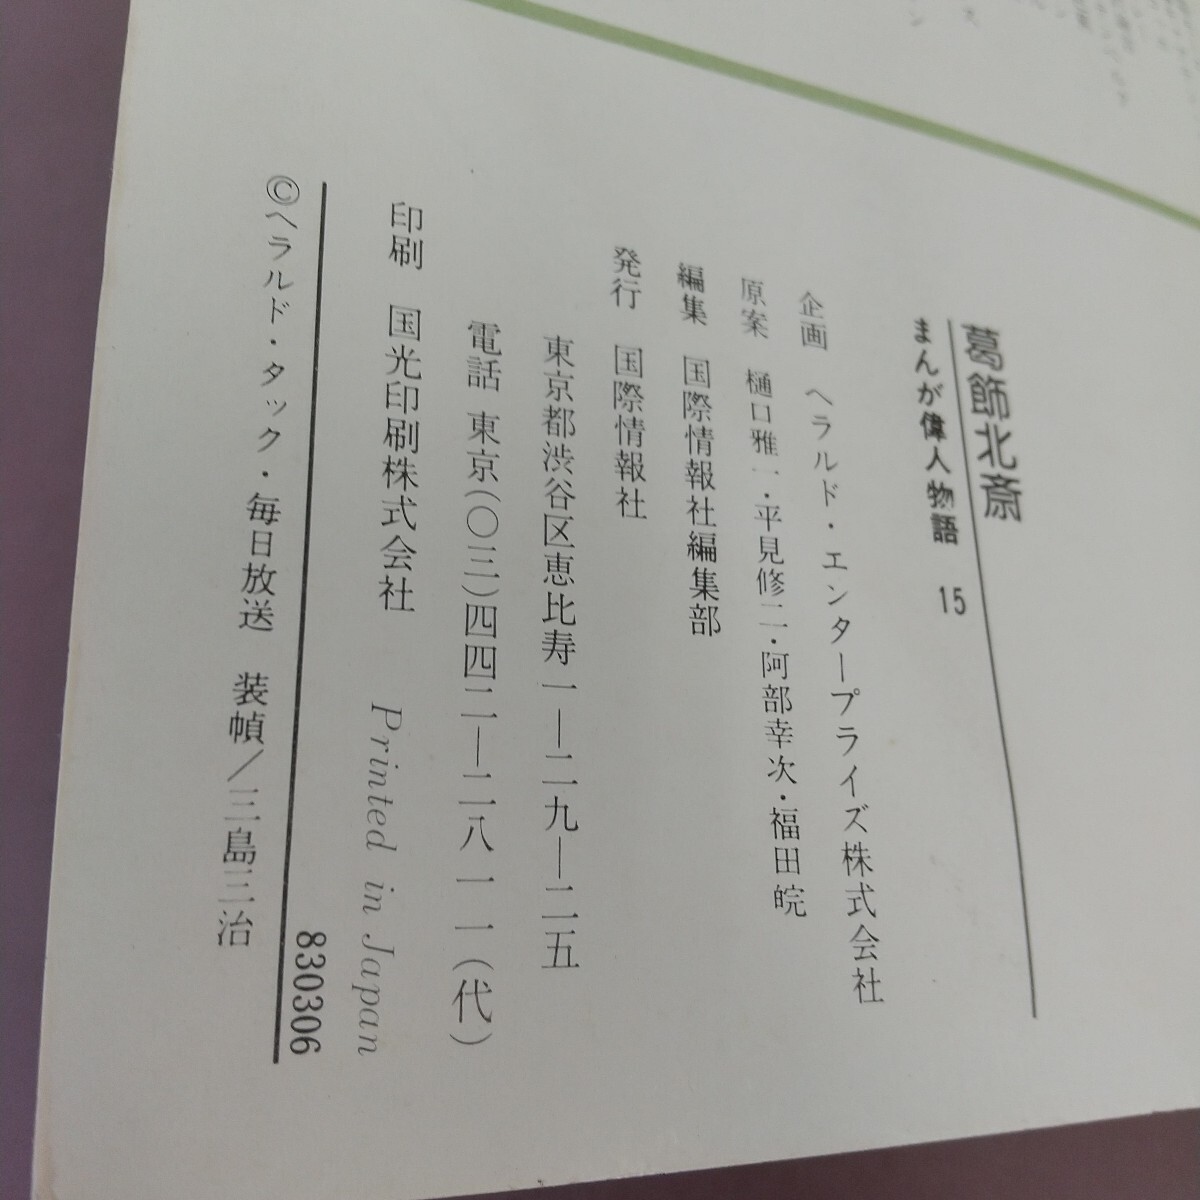 葛飾北斎
まんが偉人物語 15
企画 ヘラルド・エンタープライズ株式会社
原案 樋口雅一・平見修二・阿部幸次・福田皖
編集 国際情報社編集部
発行 国際情報社
東京都渋谷区恵比寿一―二九―二五
電話 東京(〇三)四四二―二八一一(代)
印刷 国光印刷株式会社 Printed in Japan
830306
©ヘラルド・タック・毎日放送 装幀/三島三治